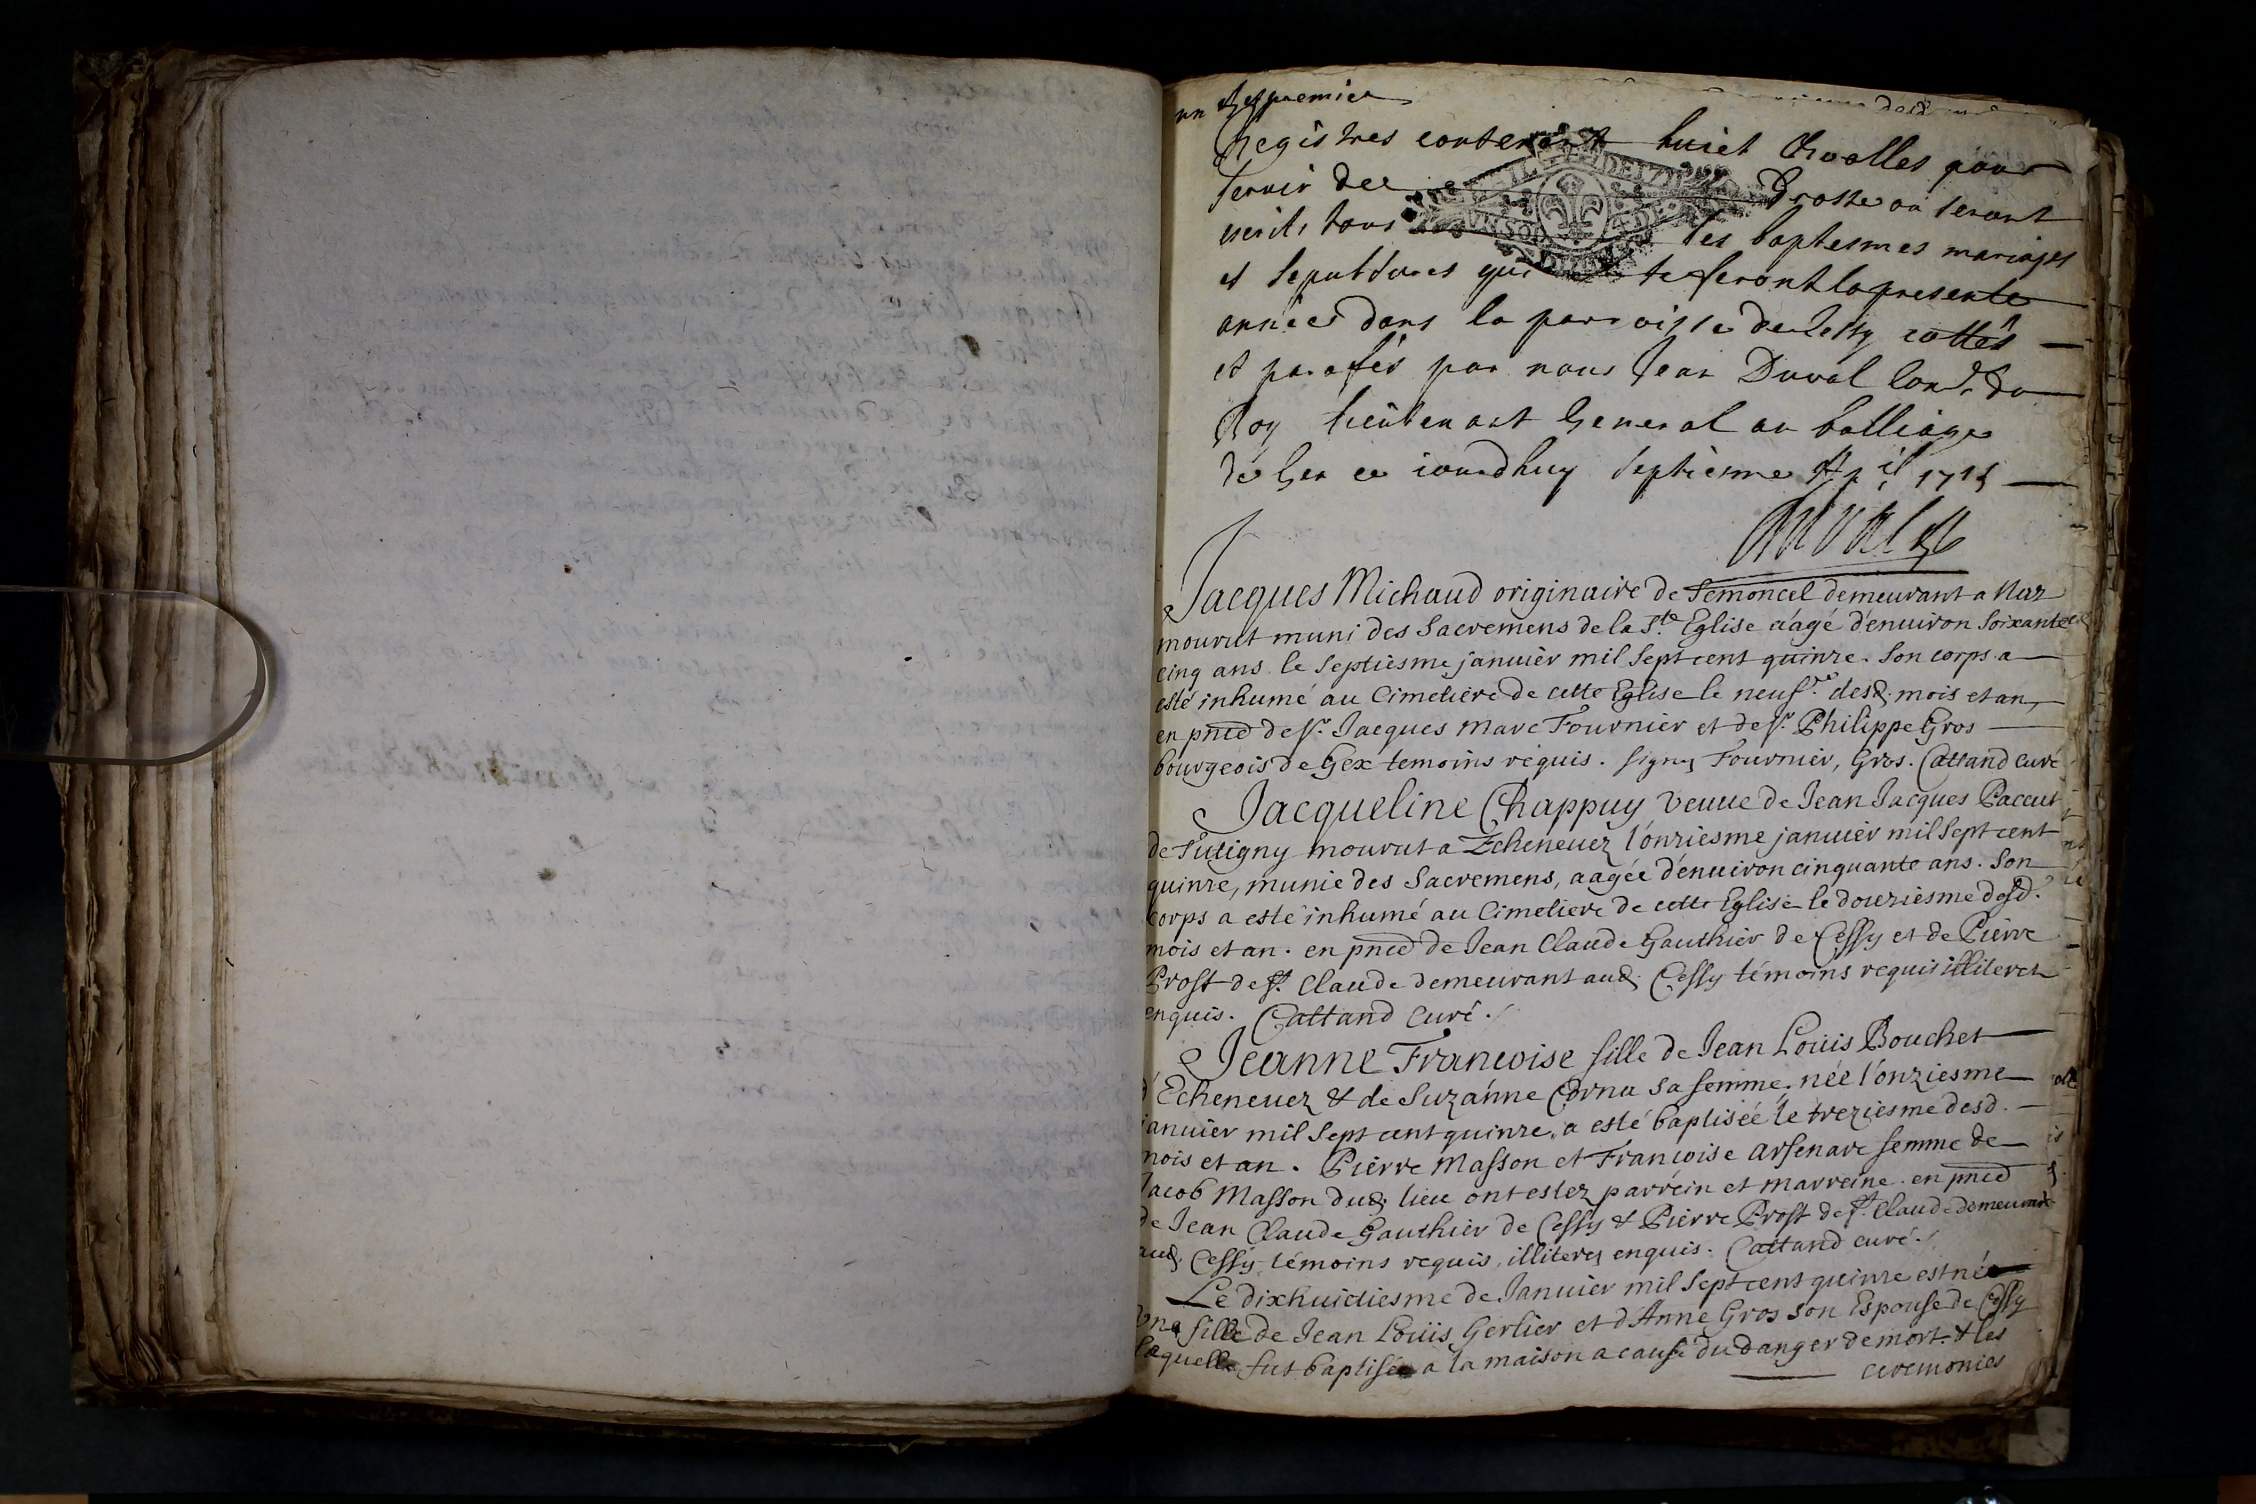 un & premier
Registres contenant huict Roolles pour
servir de Grosse ou seront
escrits tous les baptesmes mariages
et sepultures qui se feront la presente
année dans la parroisse de Cessy cottés
et parafés par nous Jean Duval Cons.r du
Roy lieutenant General au balliage
de Gex ce iourdhuy septiesme Apuril 1715
Duval
Jacques Michaud originaire de Semoncel demeurant a Naz
mourut muni des Sacremens de la S.te Eglise aagé d'enuiron soixante
cinq ans le septiesme januier mil sept cent quinze. Son corps a
esté inhumé au Cimetiere de cette Eglise le neuf.e desd. mois et an,
en pnce de s.r Jacques Marc Fournier et de s.r Philippe Gros
bourgeois de Gex temoins requis. signez Fournier, Gros. Cattand curé
Jacqueline Chappuy veuue de Jean Jacques Paccut
de Tutigny mourut a Echeneuez l'onziesme januier mil sept cent
quinze, munie des Sacremens, aagée d'enuiron cinquante ans. Son
corps a esté inhumé au Cimetiere de cette Eglise le douziesme desd.
mois et an. en pnce de Jean Claude Gauthier de Cessy et de Pierre
Prost de S.t Claude demeurant aud. Cessy témoins requis illiterez
enquis. Cattand curé.
Jeanne Francoise fille de Jean Loüis Bouchet
d'Echeneuez & de Suzanne Cornu sa femme, née l'onziesme
januier mil sept cent quinze, a esté baptisée le treziesme desd.
mois et an. Pierre Masson et Francoise Arsenare femme de
Jacob Masson dud. lieu ont estez parrein et marreine. en pnce
de Jean Claude Gauthier de Cessy & Pierre Prost de S.t Claude demeurant
aud. Cessy témoins requis, illiterez enquis. Cattand curé.
Le dixhuictiesme de Januier mil sept cent quinze est née
une fille de Jean Loüis Gerlier et d'Anne Gros son Espouse de Cessy
laquelle fut baptisée a la maison a cause du danger de mort. & les
ceremonies